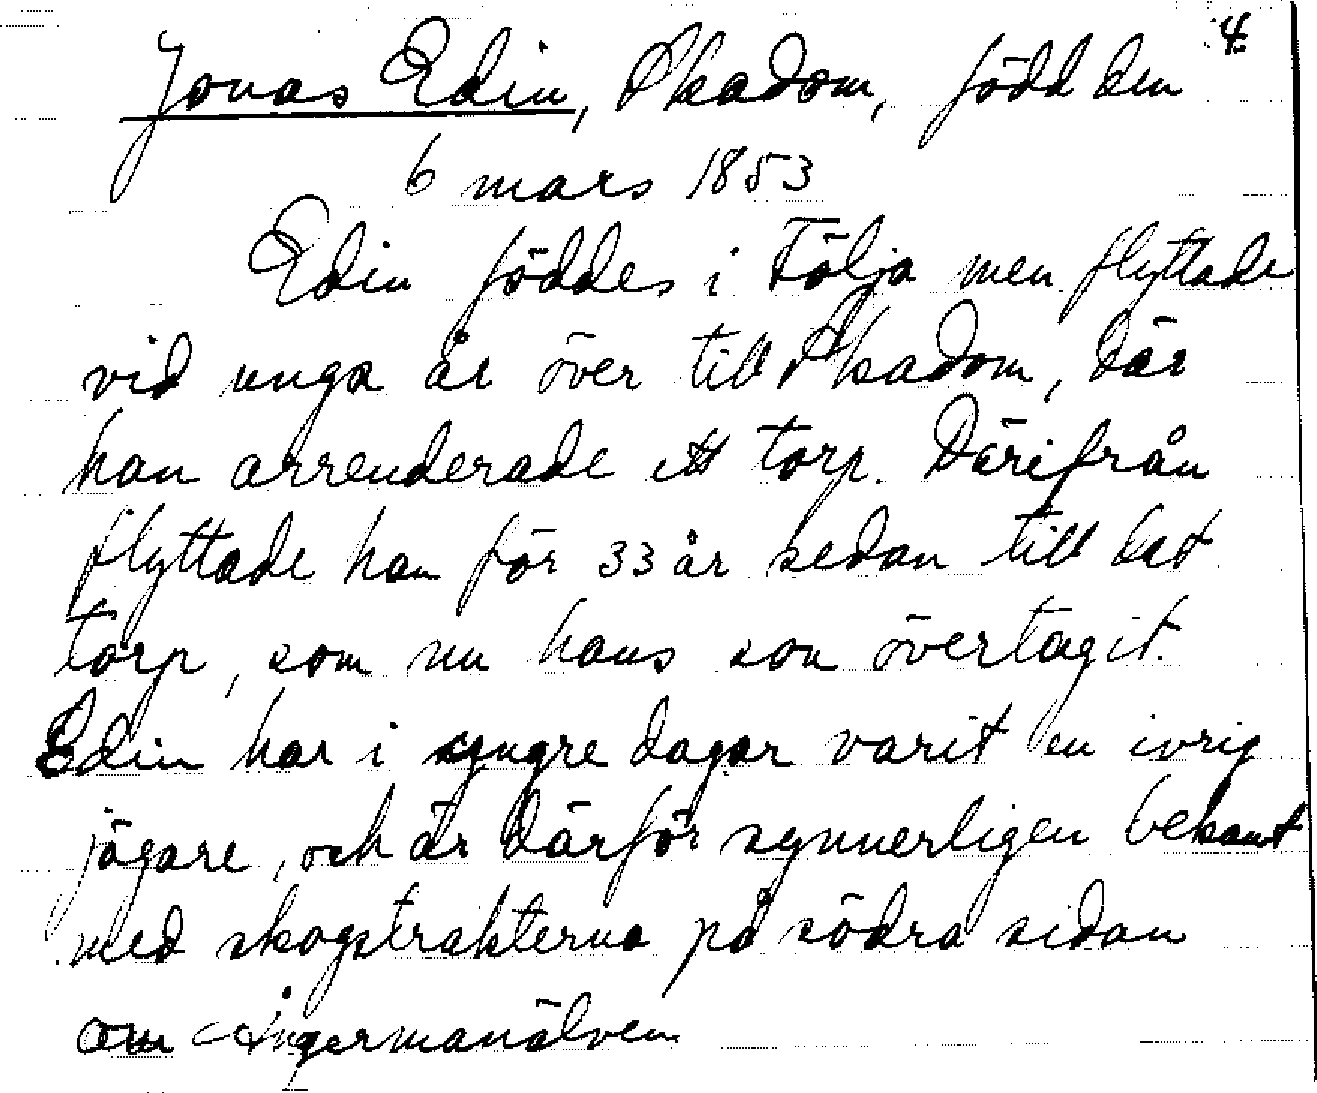 4.
Jonas Edin, Skadom, född den
6 mars 1853
Edin föddes i Tölja men flyttade
vid unga år över till Skadom, där
han arrenderade ett torp. Därifrån
flyttade han för 33 år sedan till det
torp, som nu hans son övertagit.
Edin har i yngre dagar varit en ivrig
jägare, och är därför synnerligen bekant
med skogstrakterna på södra sidan
om Ångermanälven